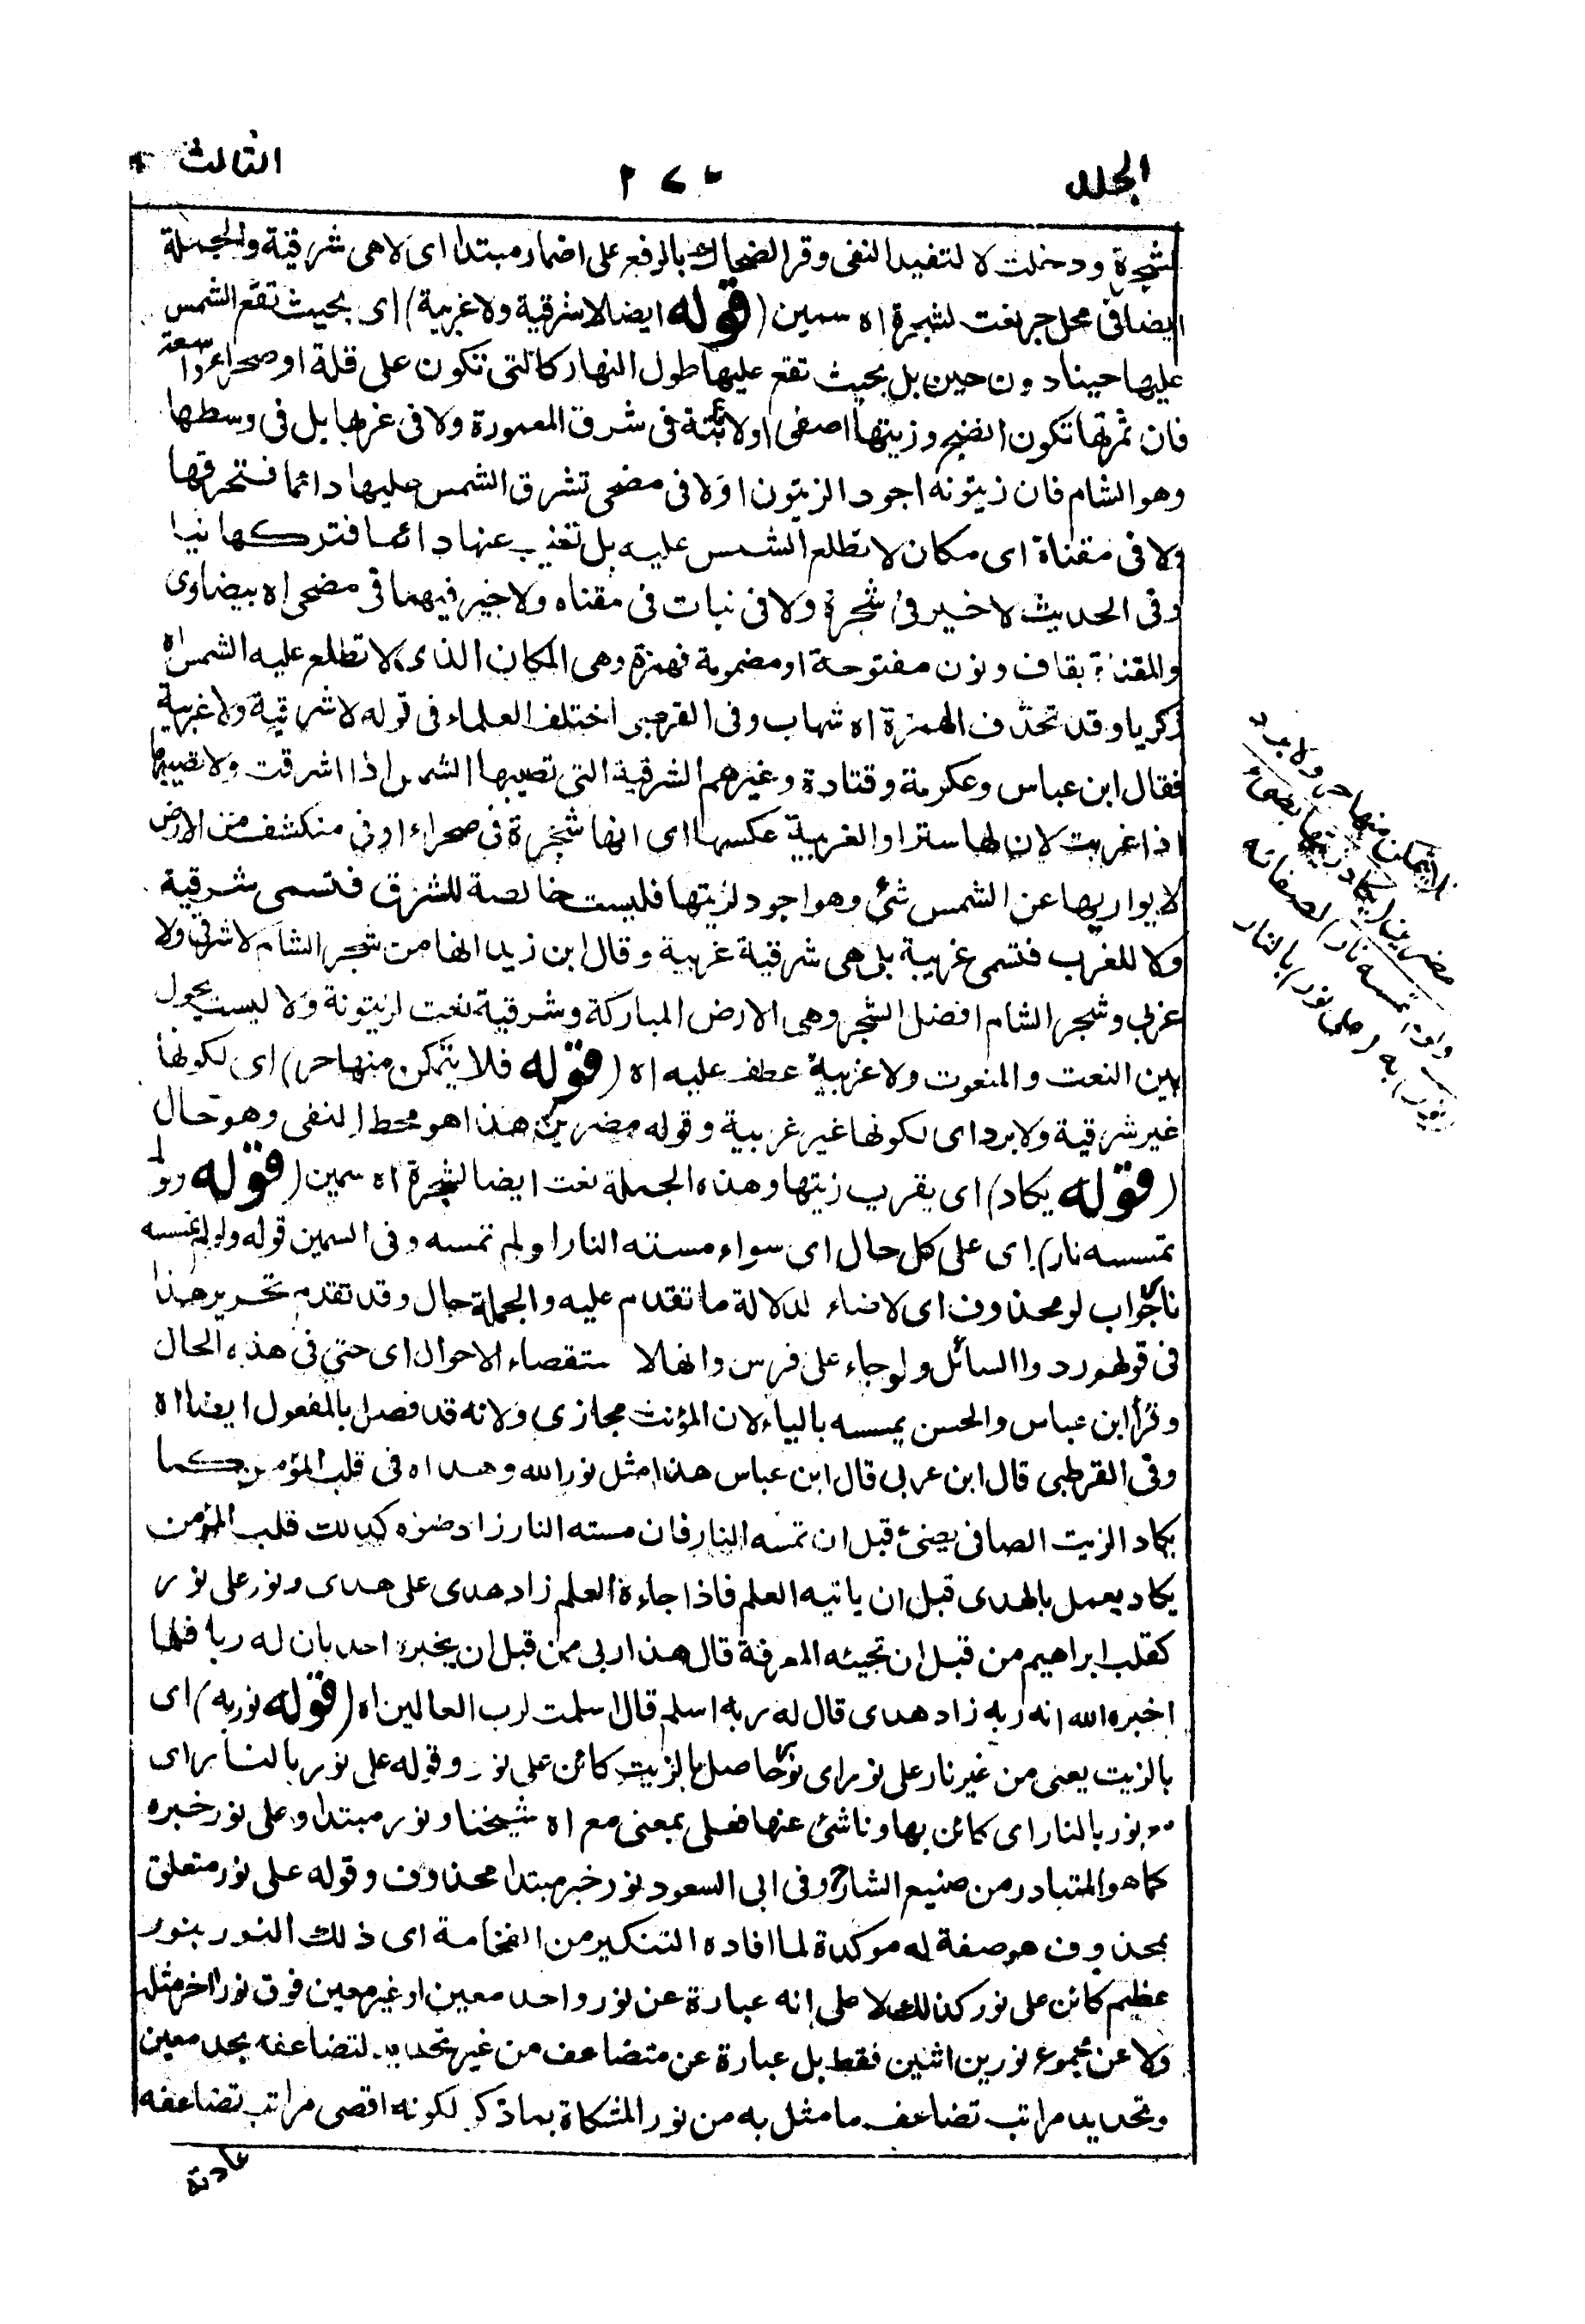 الجلد ٢٧٠ الثالث
لشجرة ودخلت لا لتفيد النفى وقرا الضحاك بالرفع على اضمار مبتدا اى لا هى شرقية والجملة
ايضا فى محل جر نعت لشجرة اه سمين (قوله ايضا لا شرقية ولا غربية) اى بحيث تقع الشمس
عليها حينا دون حين بل بحيث تقع عليها طول النهار كالتى تكون على قلة او صحراء واسعة
فان ثمرتها تكون انضج وزيتها اصفى او لا نابتة فى شرق المعمورة ولا فى غربها بل فى وسطها
وهو الشام فان زيتونه اجود الزيتون او لا فى مضحى تشرق الشمس عليها دائما فتحرقها
ولا فى مقناة اى مكان لا تطلع الشمس عليه بل تغيب عنها دائما فتتركها نيا
وفى الحديث لا خير فى شجرة ولا فى نبات فى مقناه ولا خير فيهما فى مضحى اه بيضاوى
والمقناة بقاف ونون مفتوحة او مضمومة فهمزة وهى المكان الذى لا تطلع عليه الشمس اه
زكريا وقد تحذف الهمزة اه شهاب وفى القرطبى اختلف العلماء فى قوله لا شرقية ولا غربية
فقال ابن عباس وعكرمة وقتادة وغيرهم الشرقية التى تصيبها الشمس اذا اشرقت ولا تصيبها
اذا غربت لان لها سترا والغربية عكسها اى انها شجرة فى صحراء او فى منكشف من الارض
لا يواريها عن الشمس شئ وهو اجود لزيتها فليست خالصة للشرق فتسمى شرقية
ولا للغرب فتسمى غربية بل هى شرقية غربية وقال ابن زيد انها من شجر الشام لا شرقى ولا
غربى وشجر الشام افضل الشجر وهى الارض المباركة وشرقية نعت لزيتونة ولا ليست يحول
بين النعت والمنعوت ولا غربية عطف عليه اه (قوله فلا يتمكن منها حر) اى لكونها
غير شرقية ولا برد اى لكونها غير غربية وقوله مضرين هذا هو محط النفى وهو حال
(قوله يكاد) اى يقرب زيتها وهذه الجملة نعت ايضا لشجرة اه سمين (قوله ولو لم
تمسسه نار) اى على كل حال اى سواء مسته النار او لم تمسه وفى السمين قوله ولو لم تمسسه
نار جواب لو محذوف اى لاضاء لدلالة ما تقدم عليه والجملة حال وقد تقدم تحرير هذا
فى قولهم ردوا السائل ولو جاء على فرس وانها لا ستقصاء الاحوال اى حتى فى هذه الحال
وقرأ ابن عباس والحسن يمسسه بالياء لان المؤنث مجازى ولانه قد فصل بالمفعول ايضا اه
وفى القرطبى قال ابن عربى قال ابن عباس هذا مثل نور الله وهداه فى قلب المؤمن كما
يكاد الزيت الصافى يضئ قبل ان تمسه النار فان مسته النار زاد ضوءه كذلك قلب المؤمن
يكاد يعمل بالهدى قبل ان ياتيه العلم فاذا جاءه العلم زاد هدى على هدى ونور على نور
كقلب ابراهيم من قبل ان تجيئه المعرفة قال هذا ربى من قبل ان يخبره احد بان له ربا فلما
اخبره الله انه ربه زاد هدى قال له ربه اسلم قال اسلمت لرب العالمين اه (قوله نور به) اى
بالزيت يعنى من غير نار على نور اى نور حاصل بالزيت كائن على نور وقوله على نور بالنار اى
مع نور بالنار اى كائن بها وناشئ عنها فعلى بمعنى مع اه شيخنا ونور مبتدا وعلى نور خبره
كما هو المتبادر من صنيع الشارح وفى ابى السعود نور خبر مبتدا محذوف وقوله على نور متعلق
بمحذوف هو صفة له موكدة لما افاده التنكير من الفخامة اى ذلك النور بنور
عظيم كائن على نور كذلك لا على انه عبارة عن نور واحد معين او غير معين فوق نور اخر مثله
ولا عن مجموع نورين اثنين فقط بل عبارة عن متضاعف من غير تحديد لتضاعفه بحد معين
وتحديد مراتب تضاعف ما مثل به من نور المشكاة بما ذكر لكونه اقصى مراتب تضاعفه
عادة
منها حر ولا برد
مضرين (يكاد زيتها يضئ
ولو لم تمسسه نار) لصفائه
(نور) به (على نور) بالنار